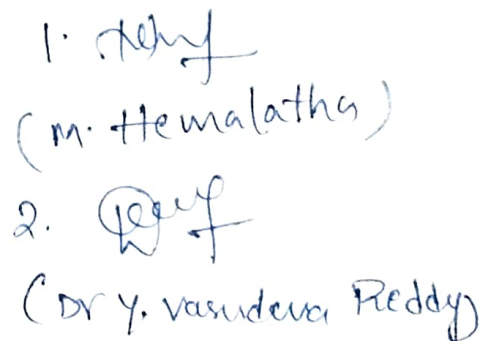 1.
(M. Hemalatha)
2.
(Dr Y. Vasudeva Reddy)